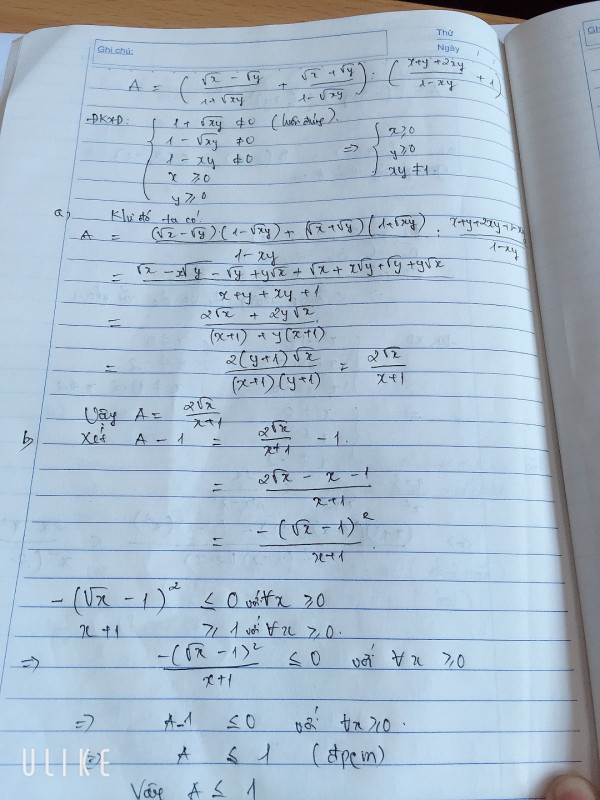 Ghi chú:
Thứ
Ngày
A = ( (√x - √y)/(1+√xy) + (√x + √y)/(1-√xy) ) : ( (x+y+2xy)/(1-xy) + 1 )
ĐKXĐ: { 1 + √xy ≠ 0 (luôn đúng)
1 - √xy ≠ 0
1 - xy ≠ 0
x ≥ 0
y ≥ 0
=> { x ≥ 0
y ≥ 0
xy ≠ 1
a, Khi đó ta có
A = ((√x - √y)(1-√xy) + (√x + √y)(1+√xy))/(1-xy) : (x+y+2xy+1-xy)/(1-xy)
= (√x - x√y - √y + y√x + √x + x√y + √y + y√x)/(x+y+xy+1)
= (2√x + 2y√x)/((x+1) + y(x+1))
= (2(y+1)√x)/((x+1)(y+1)) = 2√x/(x+1)
Vậy A = 2√x/(x+1)
b, Xét A - 1 = 2√x/(x+1) - 1
= (2√x - x - 1)/(x+1)
= -(√x - 1)²/(x+1)
-(√x - 1)² ≤ 0 với ∀x ≥ 0
x+1 ≥ 1 với ∀x ≥ 0.
=> -(√x - 1)²/(x+1) ≤ 0 với ∀x ≥ 0
=> A-1 ≤ 0 với ∀x ≥ 0.
A ≤ 1 (đpcm)
Vậy A ≤ 1
ULIKE